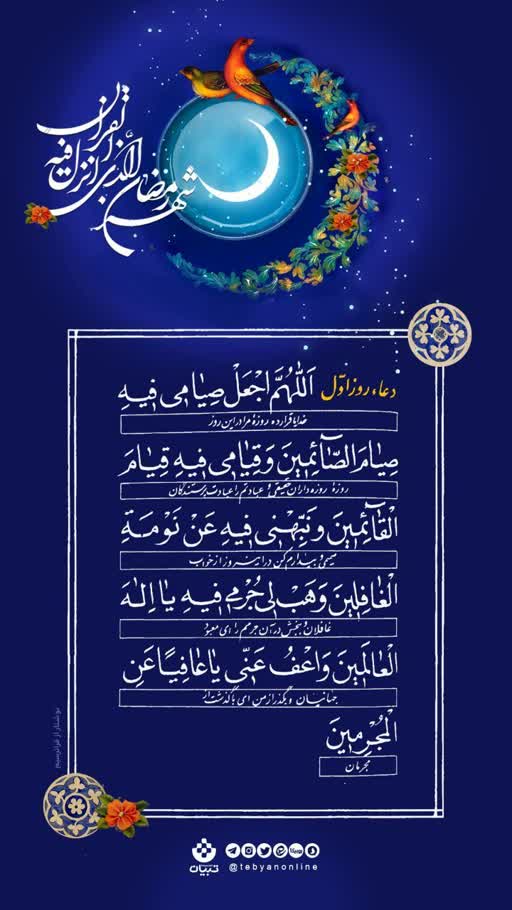 شهر رمضان الذی انزل فیه القرآن
دعاء روز اوّل اَللّٰهُمَّ اجْعَلْ صِیٰامی فیهِ
خدایا قرار ده روزهٔ مرا در این روز
صِیٰامَ الصّٰآئِمینَ وَ قِیٰامی فیهِ قِیٰامَ
روزهٔ روزه داران حقیقی و عبادتم را عبادت پرستندگان
الْقٰآئِمینَ وَ نَبِّهْنی فیهِ عَنْ نَوْمَةِ
صمیمی و بیدارم کن در این روز از خواب
الْغٰافِلینَ وَ هَبْ لی جُرْمی فیهِ یٰا اِلٰهَ
غافلان و ببخش در آن جرمم را ای معبود
الْعٰالَمینَ وَاعْفُ عَنّی یٰا عٰافِیًا عَنِ
جهانیان و بگذر از من ای با گذشت از
الْمُجْرِمینَ
مجرمان
تبیان
@tebyanonline